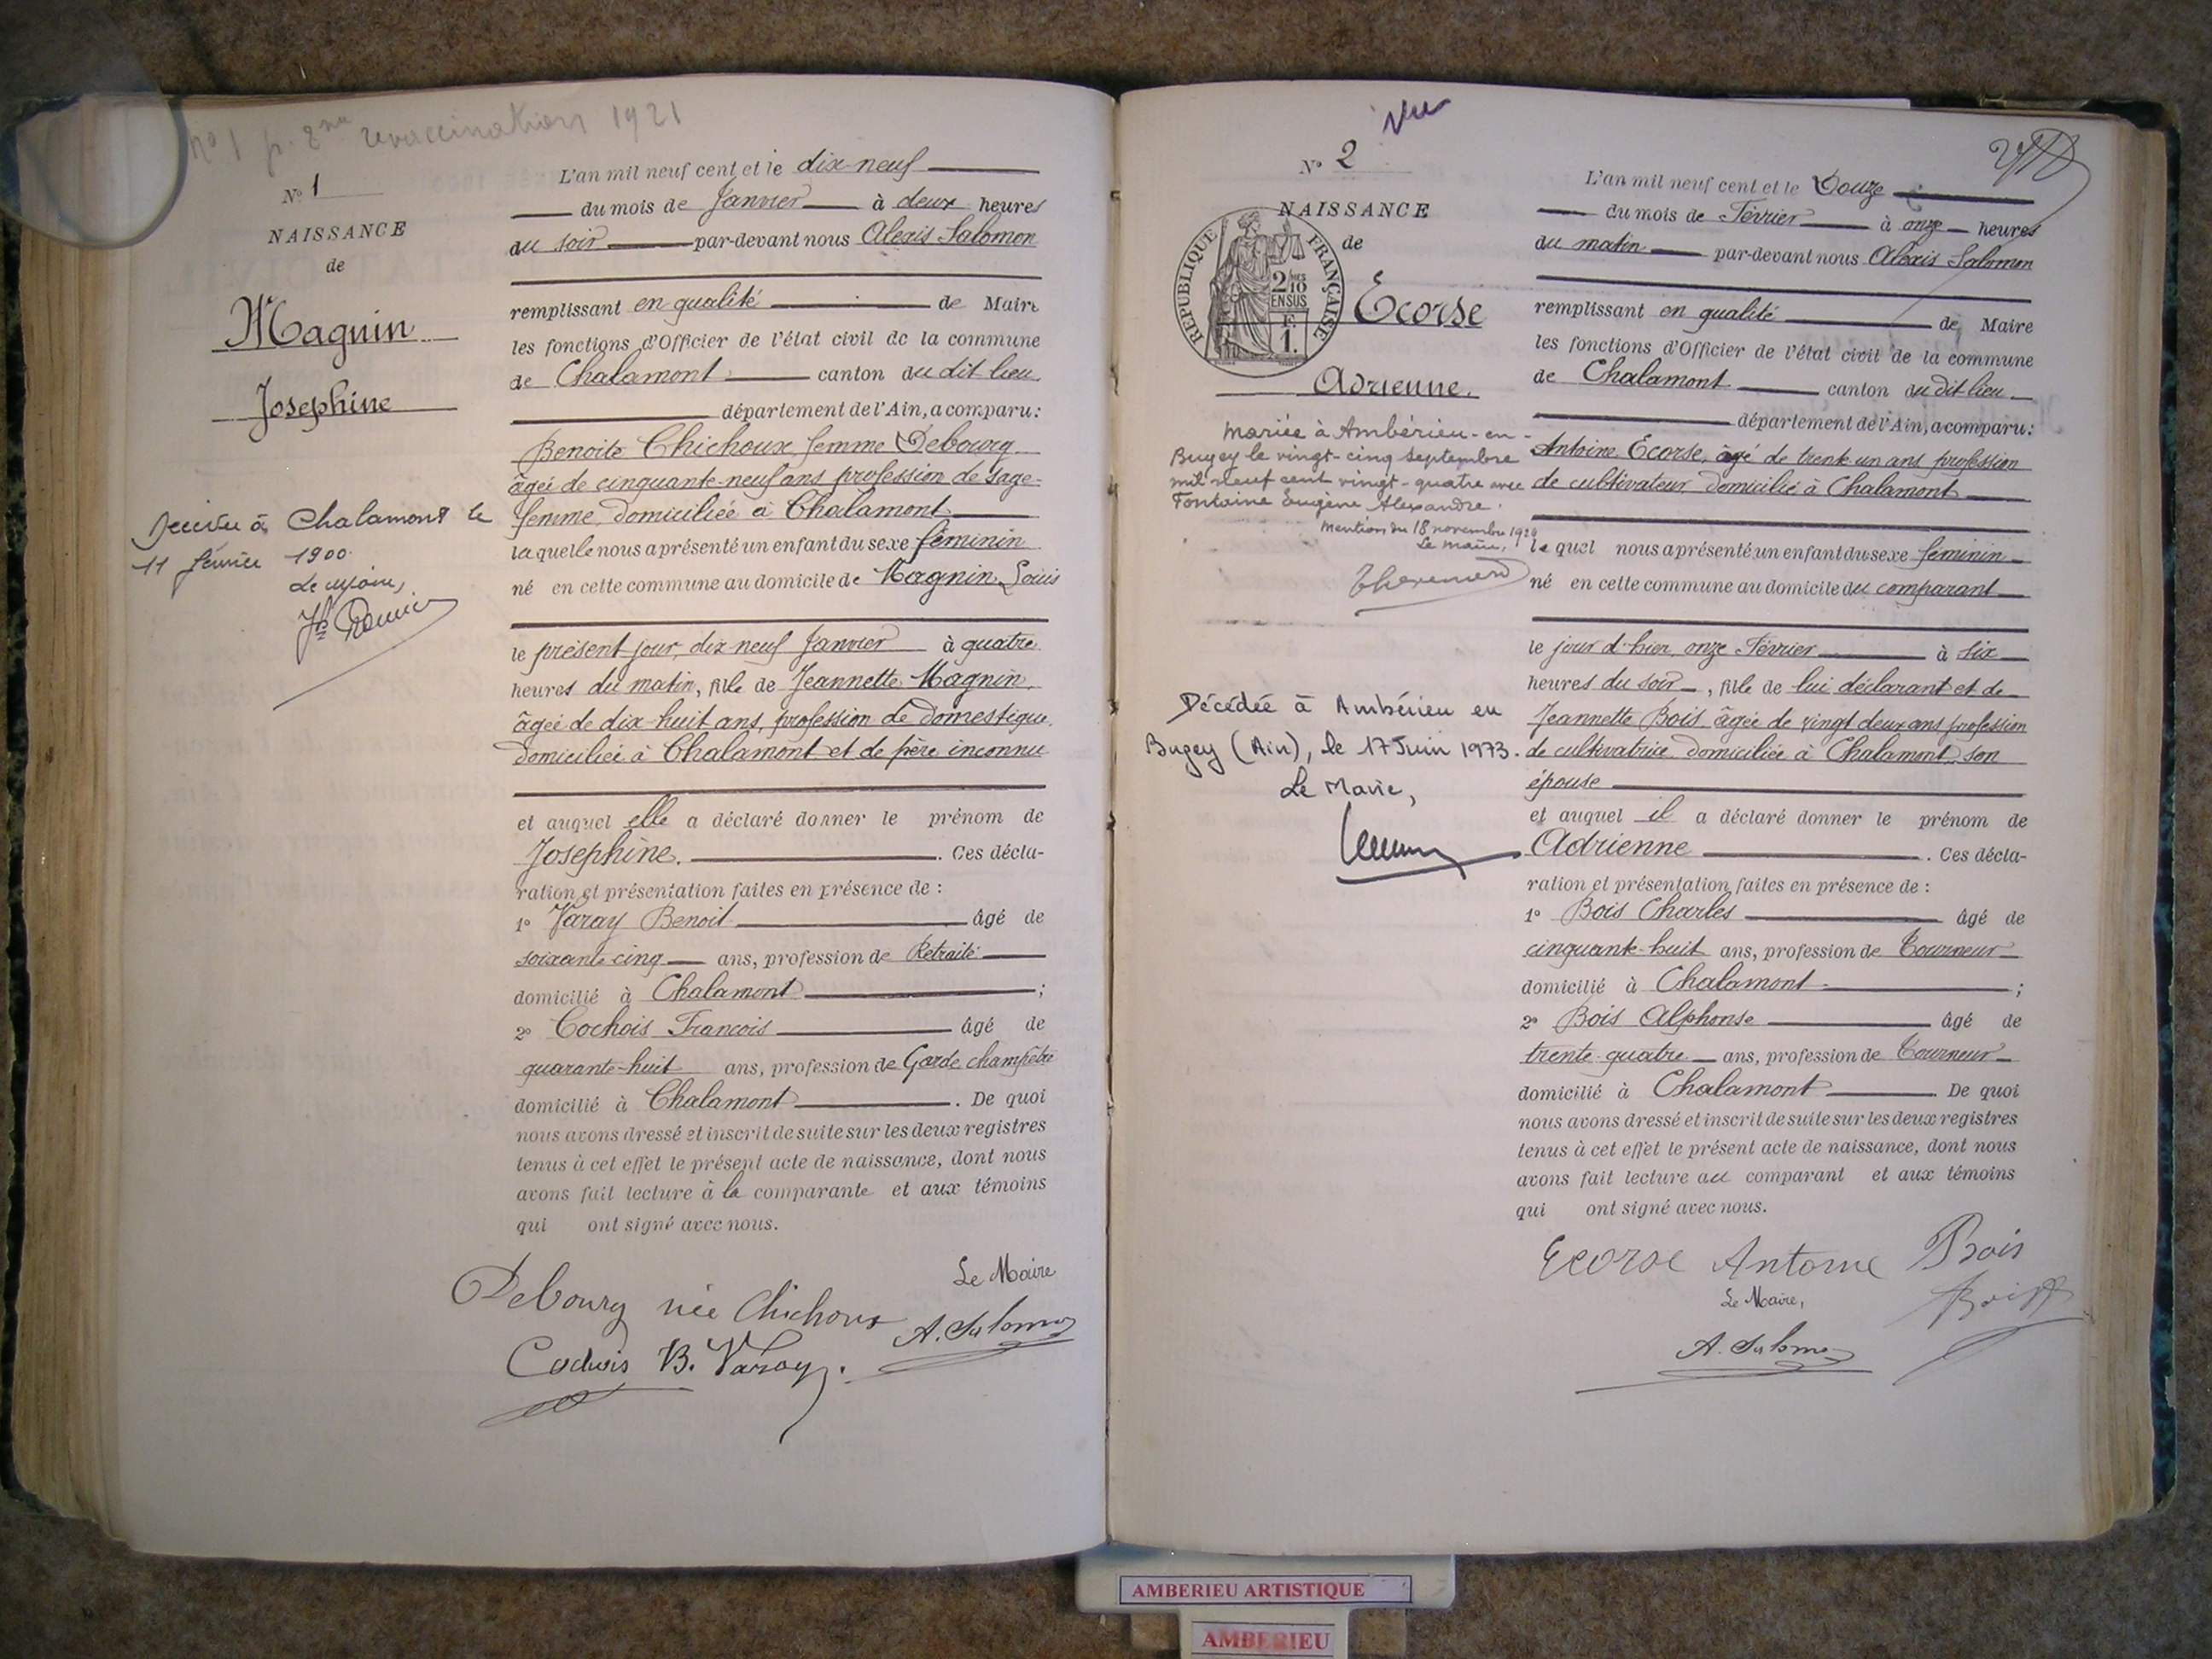 No 1 p. 2me revaccination 1921
No 1
NAISSANCE
de
Magnin
Josephine
Décédée à Chalamont le
11 février 1900
Le Maire,
L'an mil neuf cent et le dix-neuf
du mois de Janvier à deux heures
du soir par-devant nous Alexis Salomon
remplissant en qualité de Maire
les fonctions d'Officier de l'état civil de la commune
de Chalamont canton du dit lieu
département de l'Ain, a comparu:
Benoite Chichoux femme Debourg
âgée de cinquante-neuf ans profession de sage-
femme, domiciliée à Chalamont
laquelle nous a présenté un enfant du sexe féminin
né en cette commune au domicile de Magnin Louis
le présent jour, dix-neuf Janvier à quatre
heures du matin, fille de Jeannette Magnin,
âgée de dix-huit ans, profession de domestique,
domiciliée à Chalamont et de père inconnu
et auquel elle a déclaré donner le prénom de
Josephine. Ces décla-
ration et présentation faites en présence de :
1o Varay Benoit âgé de
soixante cinq ans, profession de Retraité
domicilié à Chalamont ;
2o Cochois Francois âgé de
quarante-huit ans, profession de Garde champêtre
domicilié à Chalamont. De quoi
nous avons dressé et inscrit de suite sur les deux registres
tenus à cet effet le présent acte de naissance, dont nous
avons fait lecture à la comparante et aux témoins
qui ont signé avec nous.
Le Maire
Debourg née Chichoux A. Salomon
Cochois B. Varay.
vu
No 2
NAISSANCE
de
REPUBLIQUE FRANÇAISE
2/10
EN SUS
F.
1.
Ecorse
Adrienne.
Mariée à Ambérieu-en-
Bugey le vingt-cinq septembre
mil neuf cent vingt-quatre avec
Fontaine Eugène Alexandre.
Mention du 18 novembre
Le maire,
Décédée à Ambérieu en
Bugey (Ain), le 17 Juin 1973.
Le Maire,
L'an mil neuf cent et le Douze
du mois de Février à onze heures
du matin par-devant nous Alexis Salomon
remplissant en qualité de Maire
les fonctions d'Officier de l'état civil de la commune
de Chalamont canton du dit-lieu
département de l'Ain, a comparu:
Antoine Ecorse, âgé de trente un ans profession
de cultivateur, domicilié à Chalamont
lequel nous a présenté un enfant du sexe féminin
né en cette commune au domicile du comparant
le jour d'hier, onze Février à six
heures du soir, fille de lui déclarant et de
Jeannette Bois âgée de vingt deux ans profession
de cultivatrice domiciliée à Chalamont, son
épouse
et auquel il a déclaré donner le prénom de
Adrienne. Ces décla-
ration et présentation faites en présence de :
1o Bois Charles âgé de
cinquante-huit ans, profession de Tourneur
domicilié à Chalamont ;
2o Bois Alphonse âgé de
trente-quatre ans, profession de Tourneur
domicilié à Chalamont De quoi
nous avons dressé et inscrit de suite sur les deux registres
tenus à cet effet le présent acte de naissance, dont nous
avons fait lecture au comparant et aux témoins
qui ont signé avec nous.
Ecorse Antoine Bois
Le Maire,
A. Salomon
AMBERIEU ARTISTIQUE
AMBERIEU